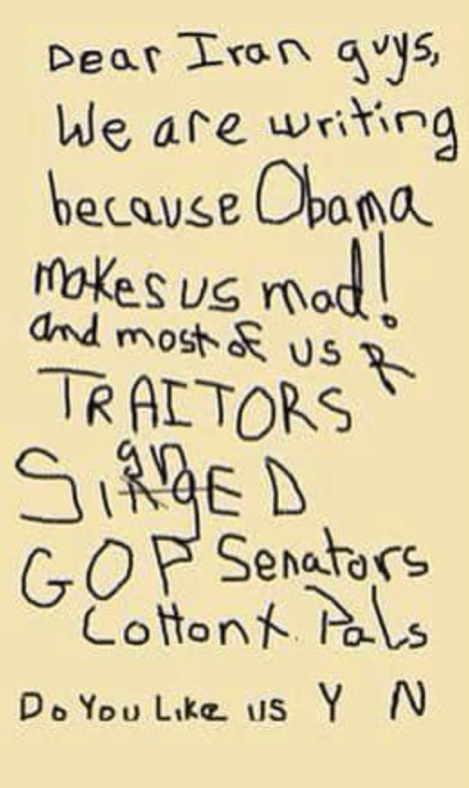 Dear Iran guys,
We are writing
because Obama
makes us mad!
and most of us R
TRAITORS
SignED
GOP Senators
Cotton + Pals
Do You Like us Y N